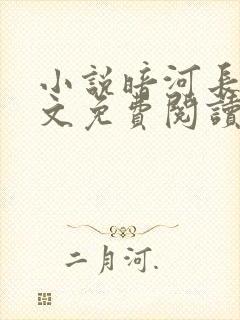 小説暗河長
文免費閱讀
二月河.